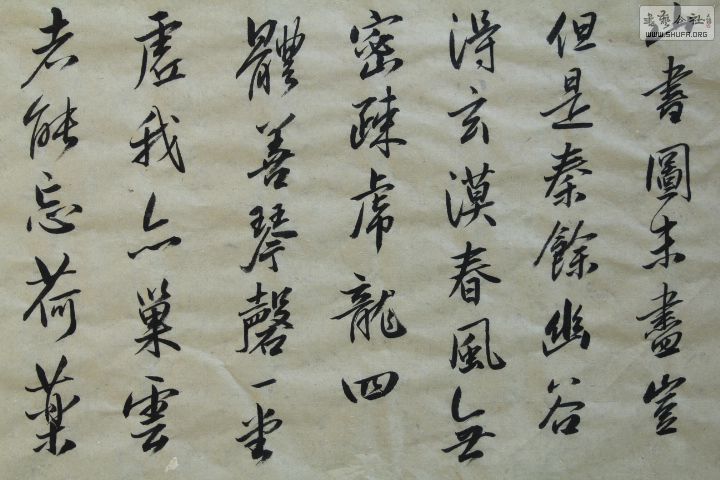 山書圖未盡豈
但是秦餘幽谷
得玄漠春風無
密疎虎龍四
體善琴磬一堂
虛我亦巢雲
者能忘荷葉
書藝公社
WWW.SHUFA.ORG